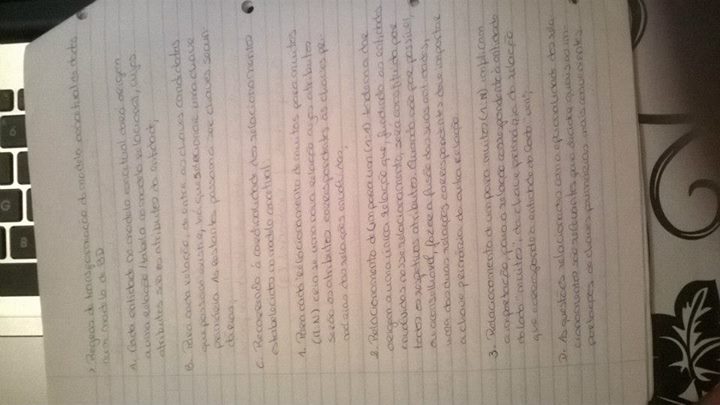 > Regras de transformação do modelo conceptual de dados
num modelo de BD
A. Cada entidade no modelo conceptual dará origem
a uma relação/tabela no modelo relacional, cujos
atributos são os atributos da entidade;
B. Para cada relação, de entre as chaves candidatas
que possam existir, há que selecionar uma chave
primária. As restantes passam a ser chaves secun-
dárias;
C. Recorrendo à cardinalidade dos relacionamentos
estabelecidos no modelo conceptual
1. Para cada relacionamento de muitos para muitos
(M:N) cria-se uma nova relação cujos atributos
serão os atributos correspondentes às chaves pri-
márias das relações envolvidas;
2. Relacionamento de um para um (1:1)
origem a uma única relação que, fundindo as entidades
envolvidas nesse relacionamento, será constituída por
todos os respetivos atributos. Quando não for possível,
ou aconselhável, fazer a fusão das suas entidades,
uma das duas relações correspondentes deve importar
a chave primária da outra relação
3. Relacionamento de um para muitos (1:N) implicam
a importação, para a relação correspondente à entidade
do lado muitos, da chave primária da relação
que corresponde à entidade do lado um;
D. As questões relacionadas com a opcionalidade dos rela-
cionamentos são relevantes para decidir quais as im-
portações de chaves primárias mais convenientes